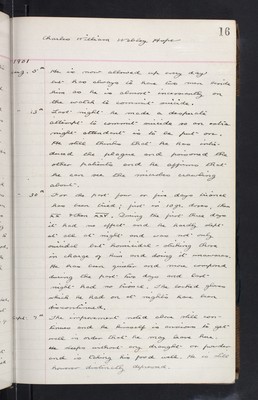 16
Charles William Webley Hope
1901
Aug. 5th He is now allowed up every day
but has always to have two men beside
him as he is almost incessantly on
the watch to commit suicide.
- 13th Last night he made a desperate
attempt to commit suicide so an extra
night attendant is to be put on.
He still thinks that he has intro-
duced the plague and poisoned the
other patients and he affirms that
he can see the microbes crawling
about.
- 30th For the past four or five days trional
has been tried; first in 10 gr. doses, then
. During the first three days
it had no effect and he hardly slept
at all at night and was not only
suicidal but homicidal - striking those
in charge of him and doing it unawares.
He has been quieter and more composed
during the past two days and last
night had no trional. The locked gloves
which he had on at nights have been
discontinued.
Sept. 7th The improvement noted above still con-
tinues and he himself is anxious to get
well in order that he may leave here.
He sleeps without any draught or powder
and is taking his food well. He is still
however decidedly depressed.